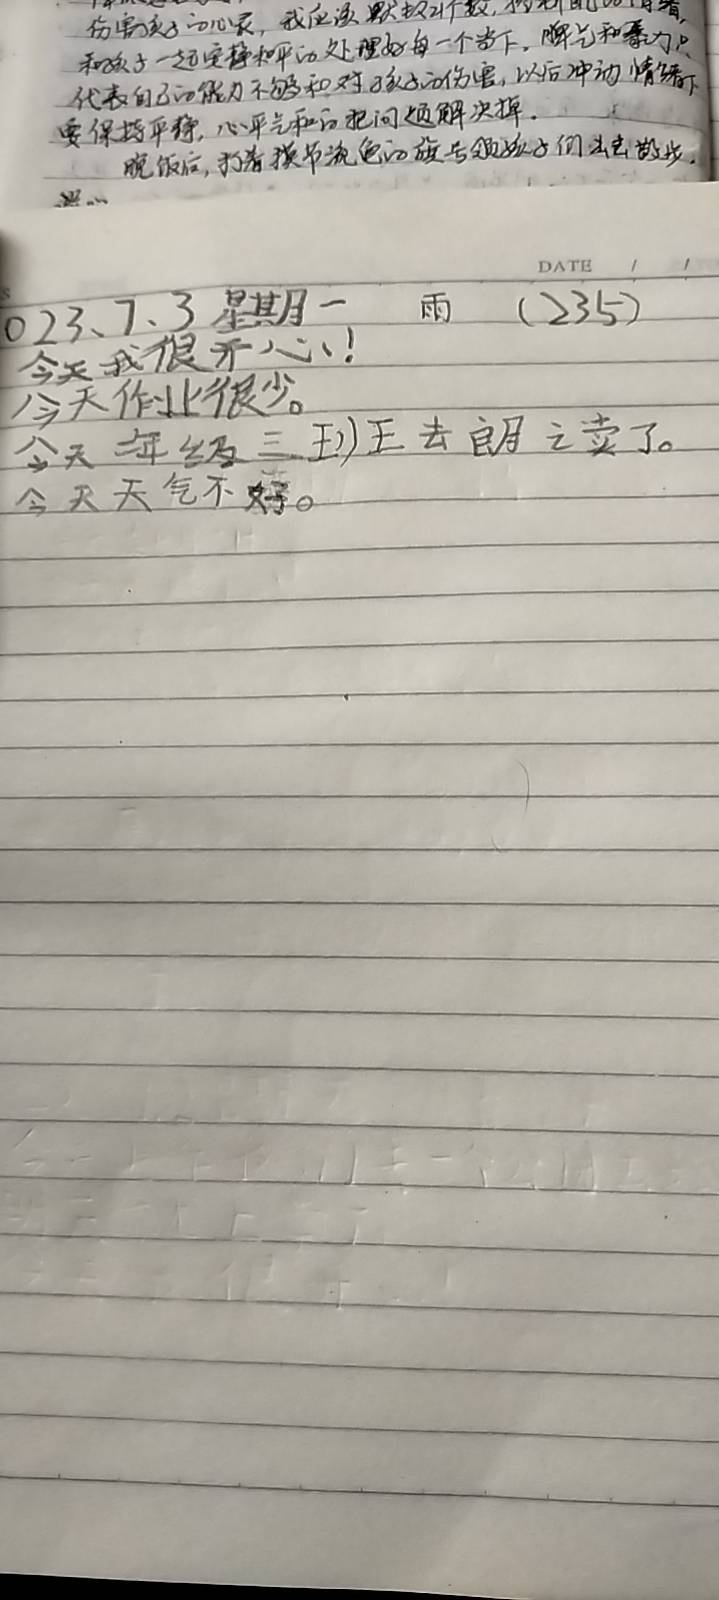 伤害孩子的心灵，我应该默数21个数，
和孩子一起安静和平的处理好每一个当下，脾气和暴力只
代表自己的能力不够和对孩子的伤害，以后冲动情绪下
要保持平静，心平气和的把问题解决掉。
晚饭后，打着模节流包的旗号领孩子们出去散步，
DATE / /
023、7、3 星期一 雨 (235)
今天我很开心！
今天作业很少。
今天年级三班王去朗之卖了。
今天天气不好。